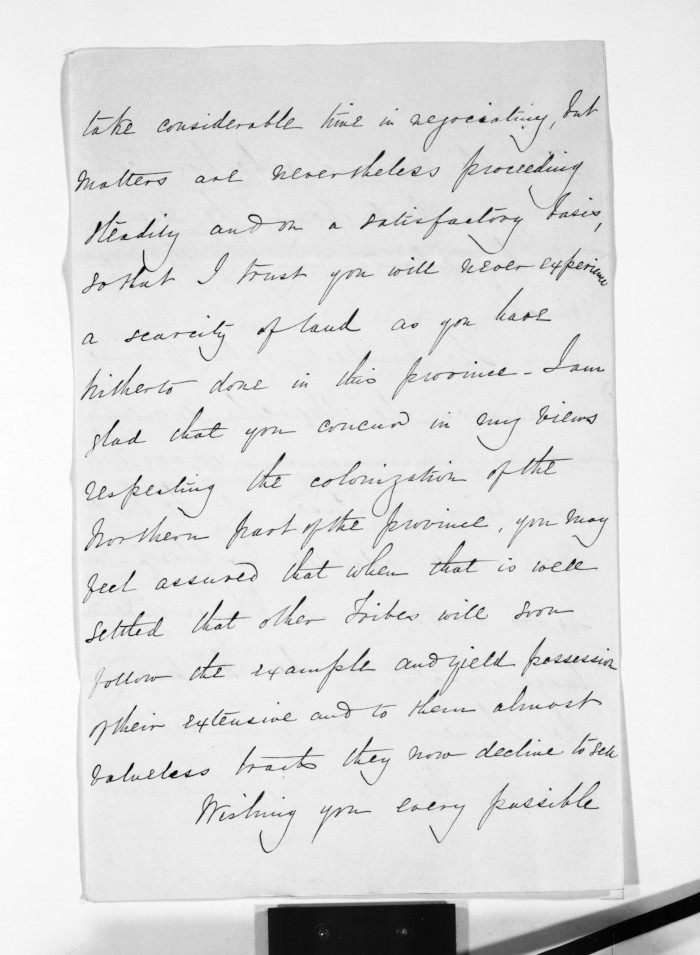 take considerable time in negociating, but
matters are nevertheless proceeding
steadily and on a satisfactory basis,
so that I trust you will never experience
a scarcity of land as you have
hitherto done in this province - I am
glad that you concur in my views
respecting the colonization of the
Northern part of the province, you may
feel assured that when that is well
settled that other Tribes will soon
follow the example and yield possession
of their extensive and to them almost
valueless tracts they now decline to sell
Wishing you every possible